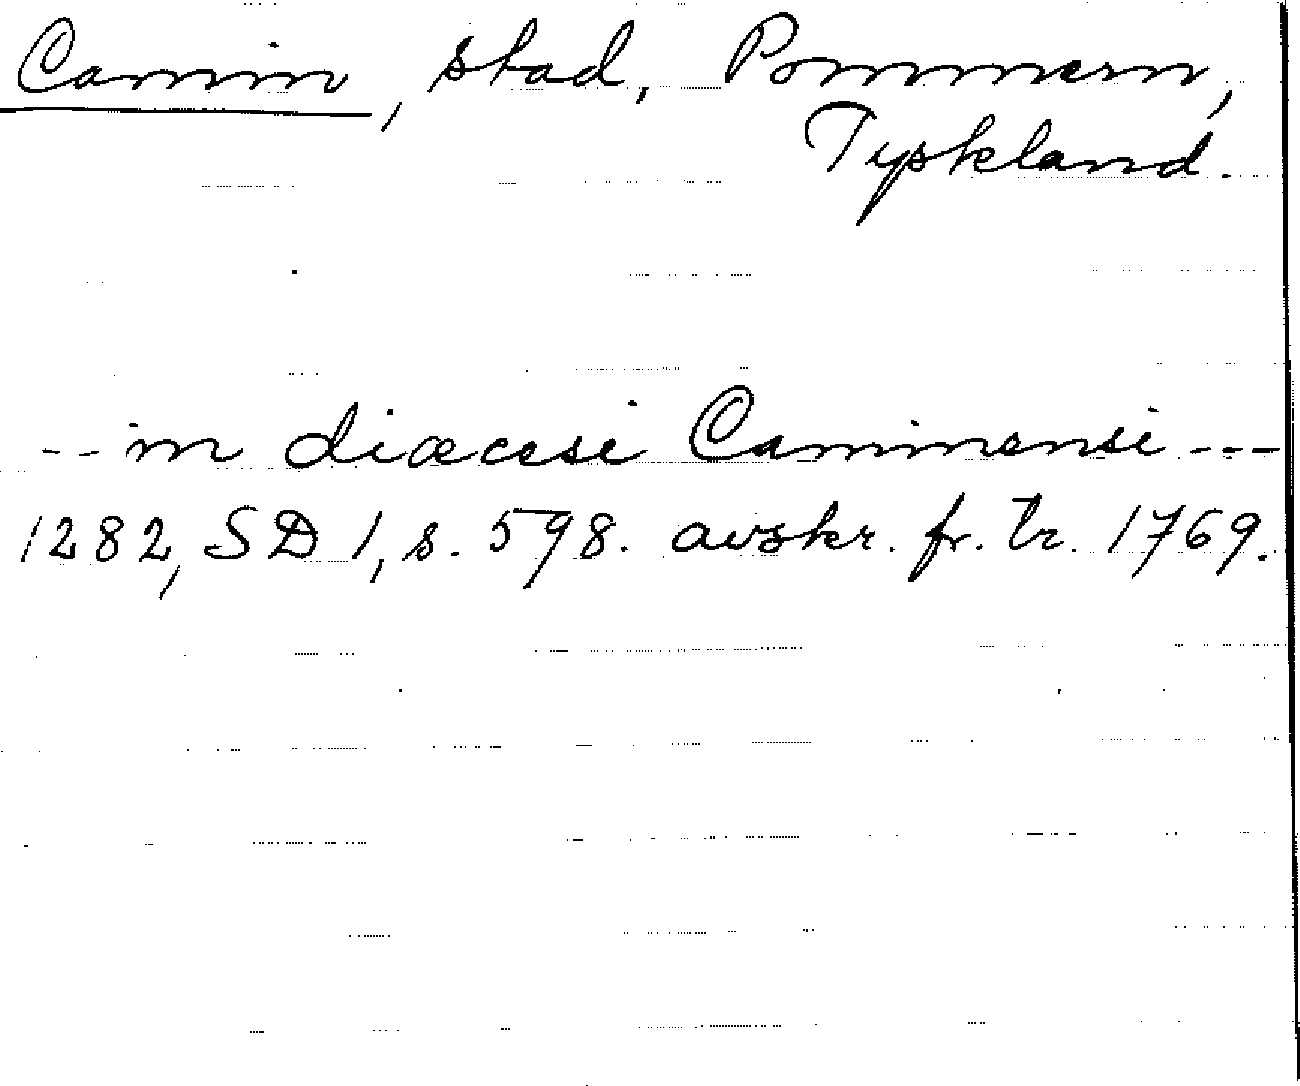 Camin, stad, Pommern,
Tyskland.
-- in diæcesi Caminensi ---
1282, SD 1, s. 598. avskr. fr. tr. 1769.